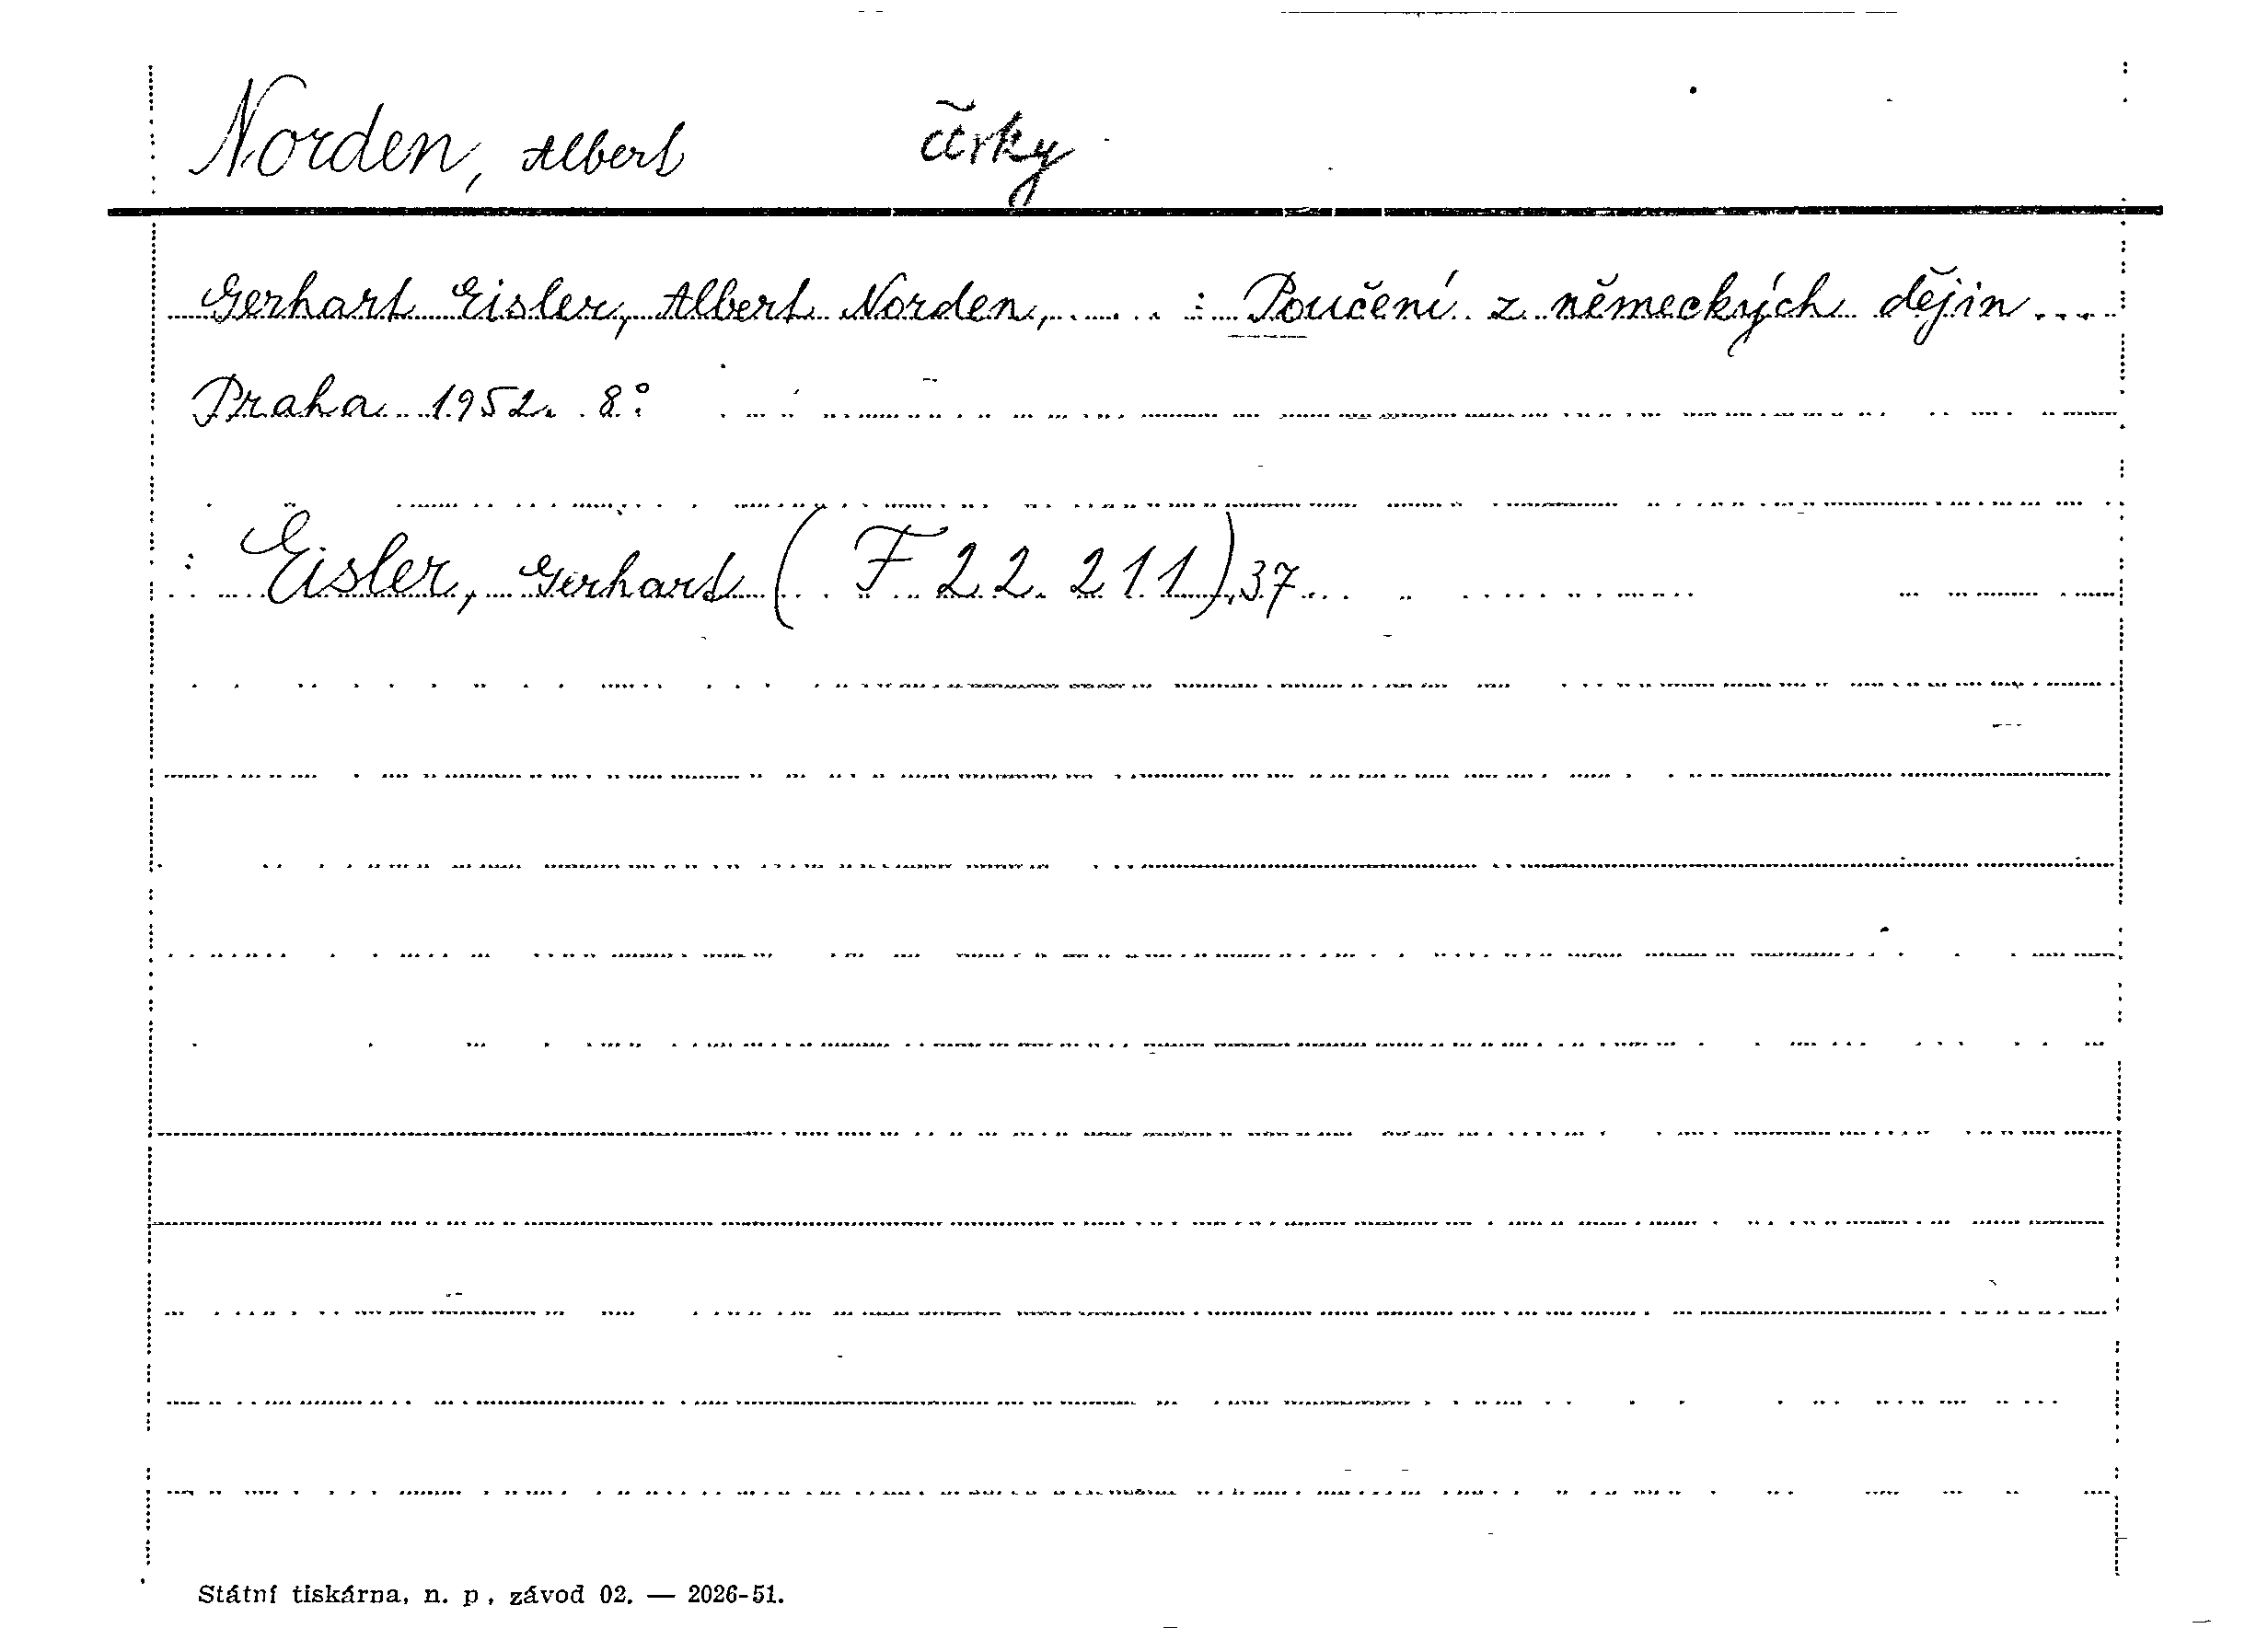 Norden, Albert čírky
Gerhart Eisler, Albert Norden, ... : Poučení z německých dějin ...
Praha 1952. 8°
: Eisler, Gerhart ( F 22.211),37
Státní tiskárna, n. p., závod 02. — 2026-51.